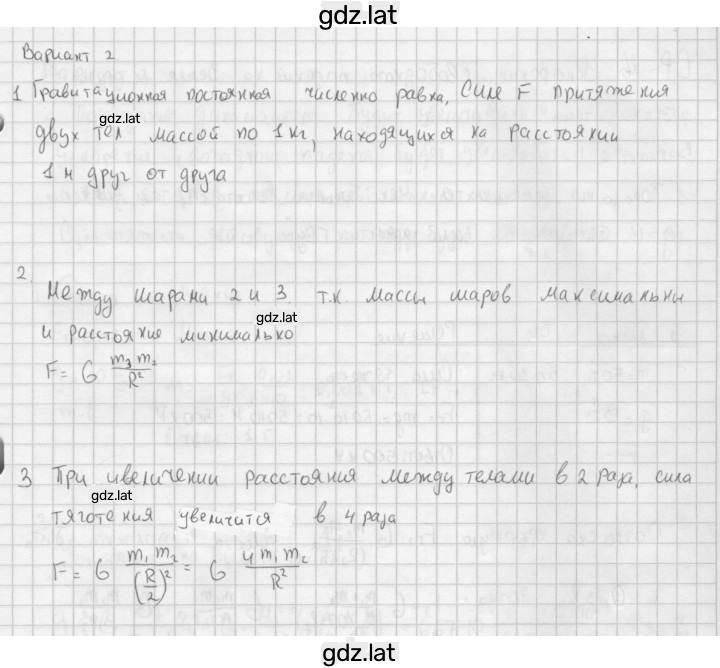 gdz.lat
Вариант 2
1 Гравитационная постоянная численно равна, силе F притяжения
двух тел массой по 1 кг, находящихся на расстоянии
1 м друг от друга
gdz.lat
2.
Между шарами 2 и 3. т.к. массы шаров максимальны
gdz.lat
и расстояние минимально
F = G m₃ m₂ / R²
3 При увеличении расстояния между телами в 2 раза, сила
gdz.lat
тяготения увеличится в 4 раза
F = G m₁ m₂ / (R/2)² = G 4 m₁ m₂ / R²
gdz.lat